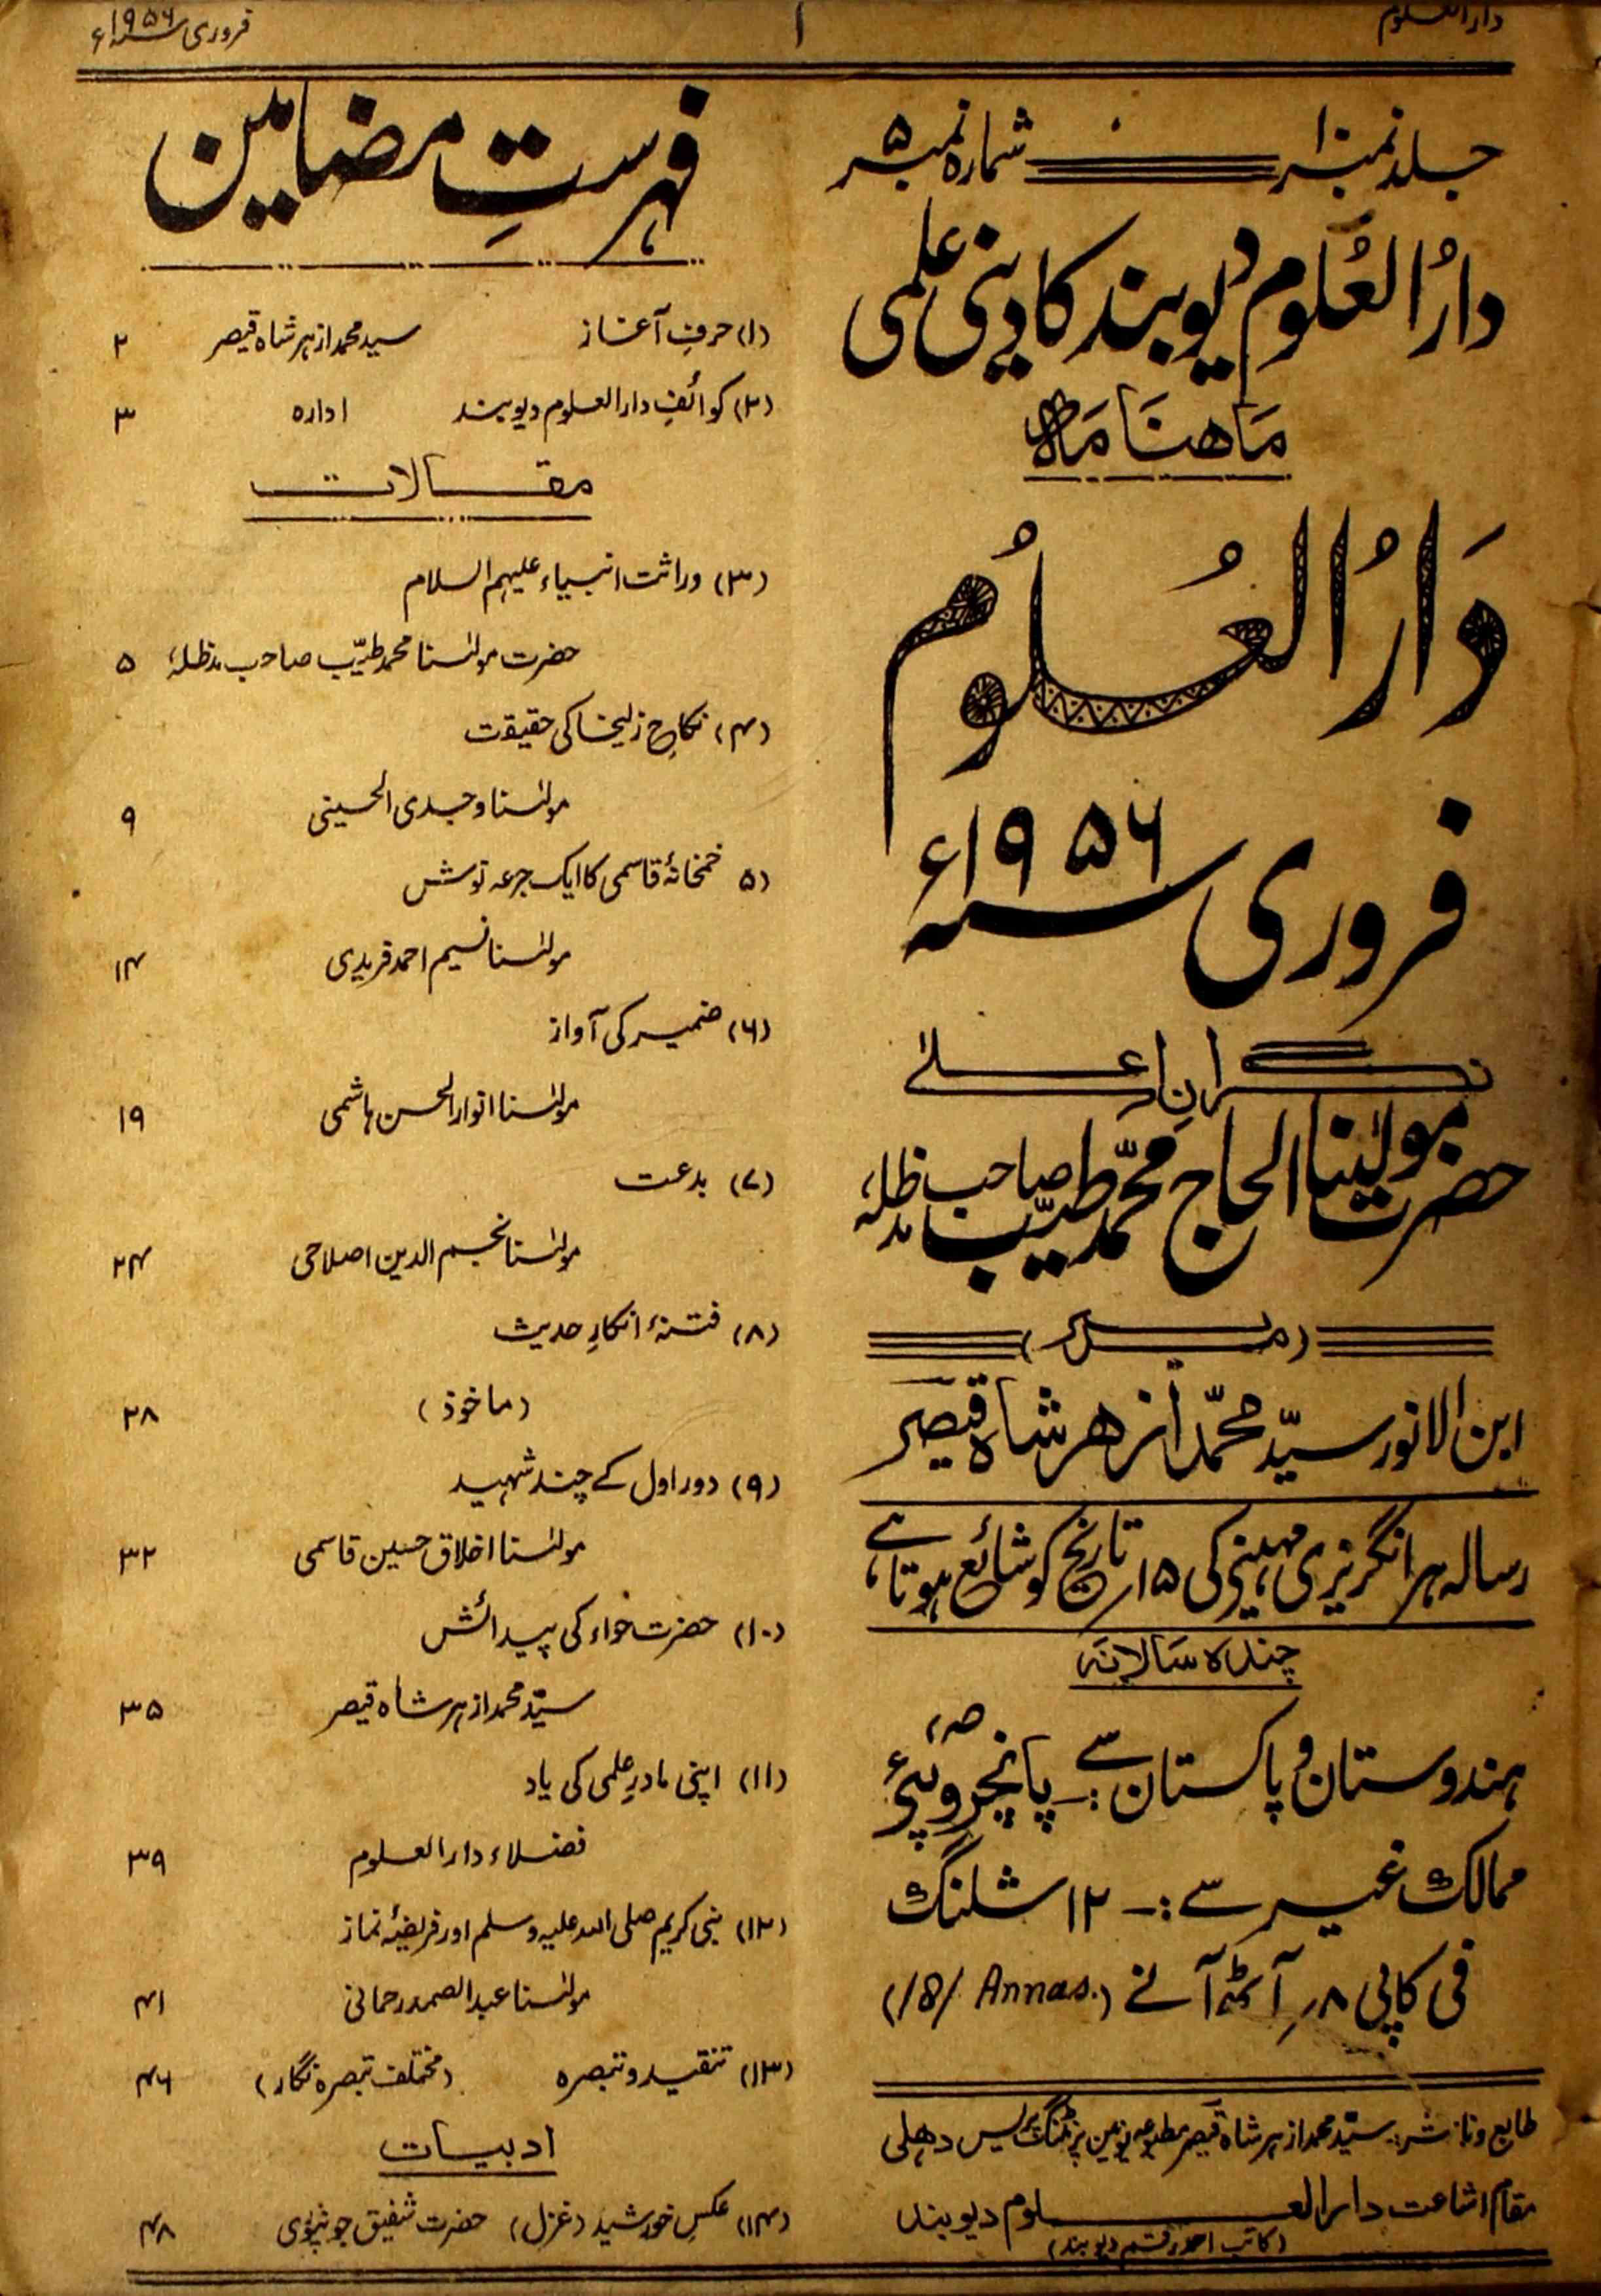 دارالعلوم
۱
فروری ۱۹۵۶ء
جلد نمبر ۱۰
شمارہ نمبر ۵
دارُالعُلوم دیوبند کا دینی علمی
مَاهنَامَہ
دَارُالعُلُوم
فروری سنہ ۱۹۵۶ء
نگرانِ اعلیٰ
حضرت مولیٰنا الحاج محمّد طیّب صاحب مدظلہٗ
(مدیر)
ابن الانور سیّد محمّد ازهر شاہ قیصر
رسالہ ہر انگریزی مہینے کی ۱۵ تاریخ کو شائع ہوتا ہے
چندہ سَالانہ
ہندوستان و پاکستان سے :۔ پانچروپئے صہ
ممالک غیر سے :۔ ۱۲ شلنگ
فی کاپی ۸؍ آٹھ آنے (/8/ Annas.)
طابع و ناشر :۔ سیّد محمد ازہر شاہ قیصر مطبوعہ یونین پرنٹنگ پریس دهلی
مقام اشاعت دارالعلوم دیوبند
(کاتب احمد رقم دیوبند)
فہرستِ مضامین
(۱) حرفِ آغاز سید محمد ازہر شاہ قیصر ۲
(۲) کوائفِ دارالعلوم دیوبند ادارہ ۳
مقالات
(۳) وراثت انبیاء علیہم السلام
حضرت مولٰنا محمد طیّب صاحب مدظلہٗ ۵
(۴) نکاحِ زلیخا کی حقیقت
مولٰنا وجدی الحسینی ۹
(۵ خمخانۂ قاسمی کا ایک جرعہ نوش
مولٰنا نسیم احمد فریدی ۱۴
(۶) ضمیر کی آواز
مولٰنا انوارالحسن ہاشمی ۱۹
(۷) بدعت
مولٰنا نجم الدین اصلاحی ۲۴
(۸) فتنۂ انکارِ حدیث
(ماخوذ) ۲۸
(۹) دور اول کے چند شہید
مولٰنا اخلاق حسین قاسمی ۳۲
(۱۰) حضرت حواء کی پیدائش
سیّد محمد ازہر شاہ قیصر ۳۵
(۱۱) اپنی مادرِ علمی کی یاد
فضلاء دارالعلوم ۳۹
(۱۲) نبی کریم صلی اللہ علیہ وسلم اور فریضۂ نماز
مولٰنا عبدالصمد رحمانی ۴۱
(۱۳) تنقید و تبصرہ (مختلف تبصرہ نگار) ۴۶
ادبیات
(۱۴) عکسِ خورشید (غزل) حضرت شفیق جونپوری ۴۸